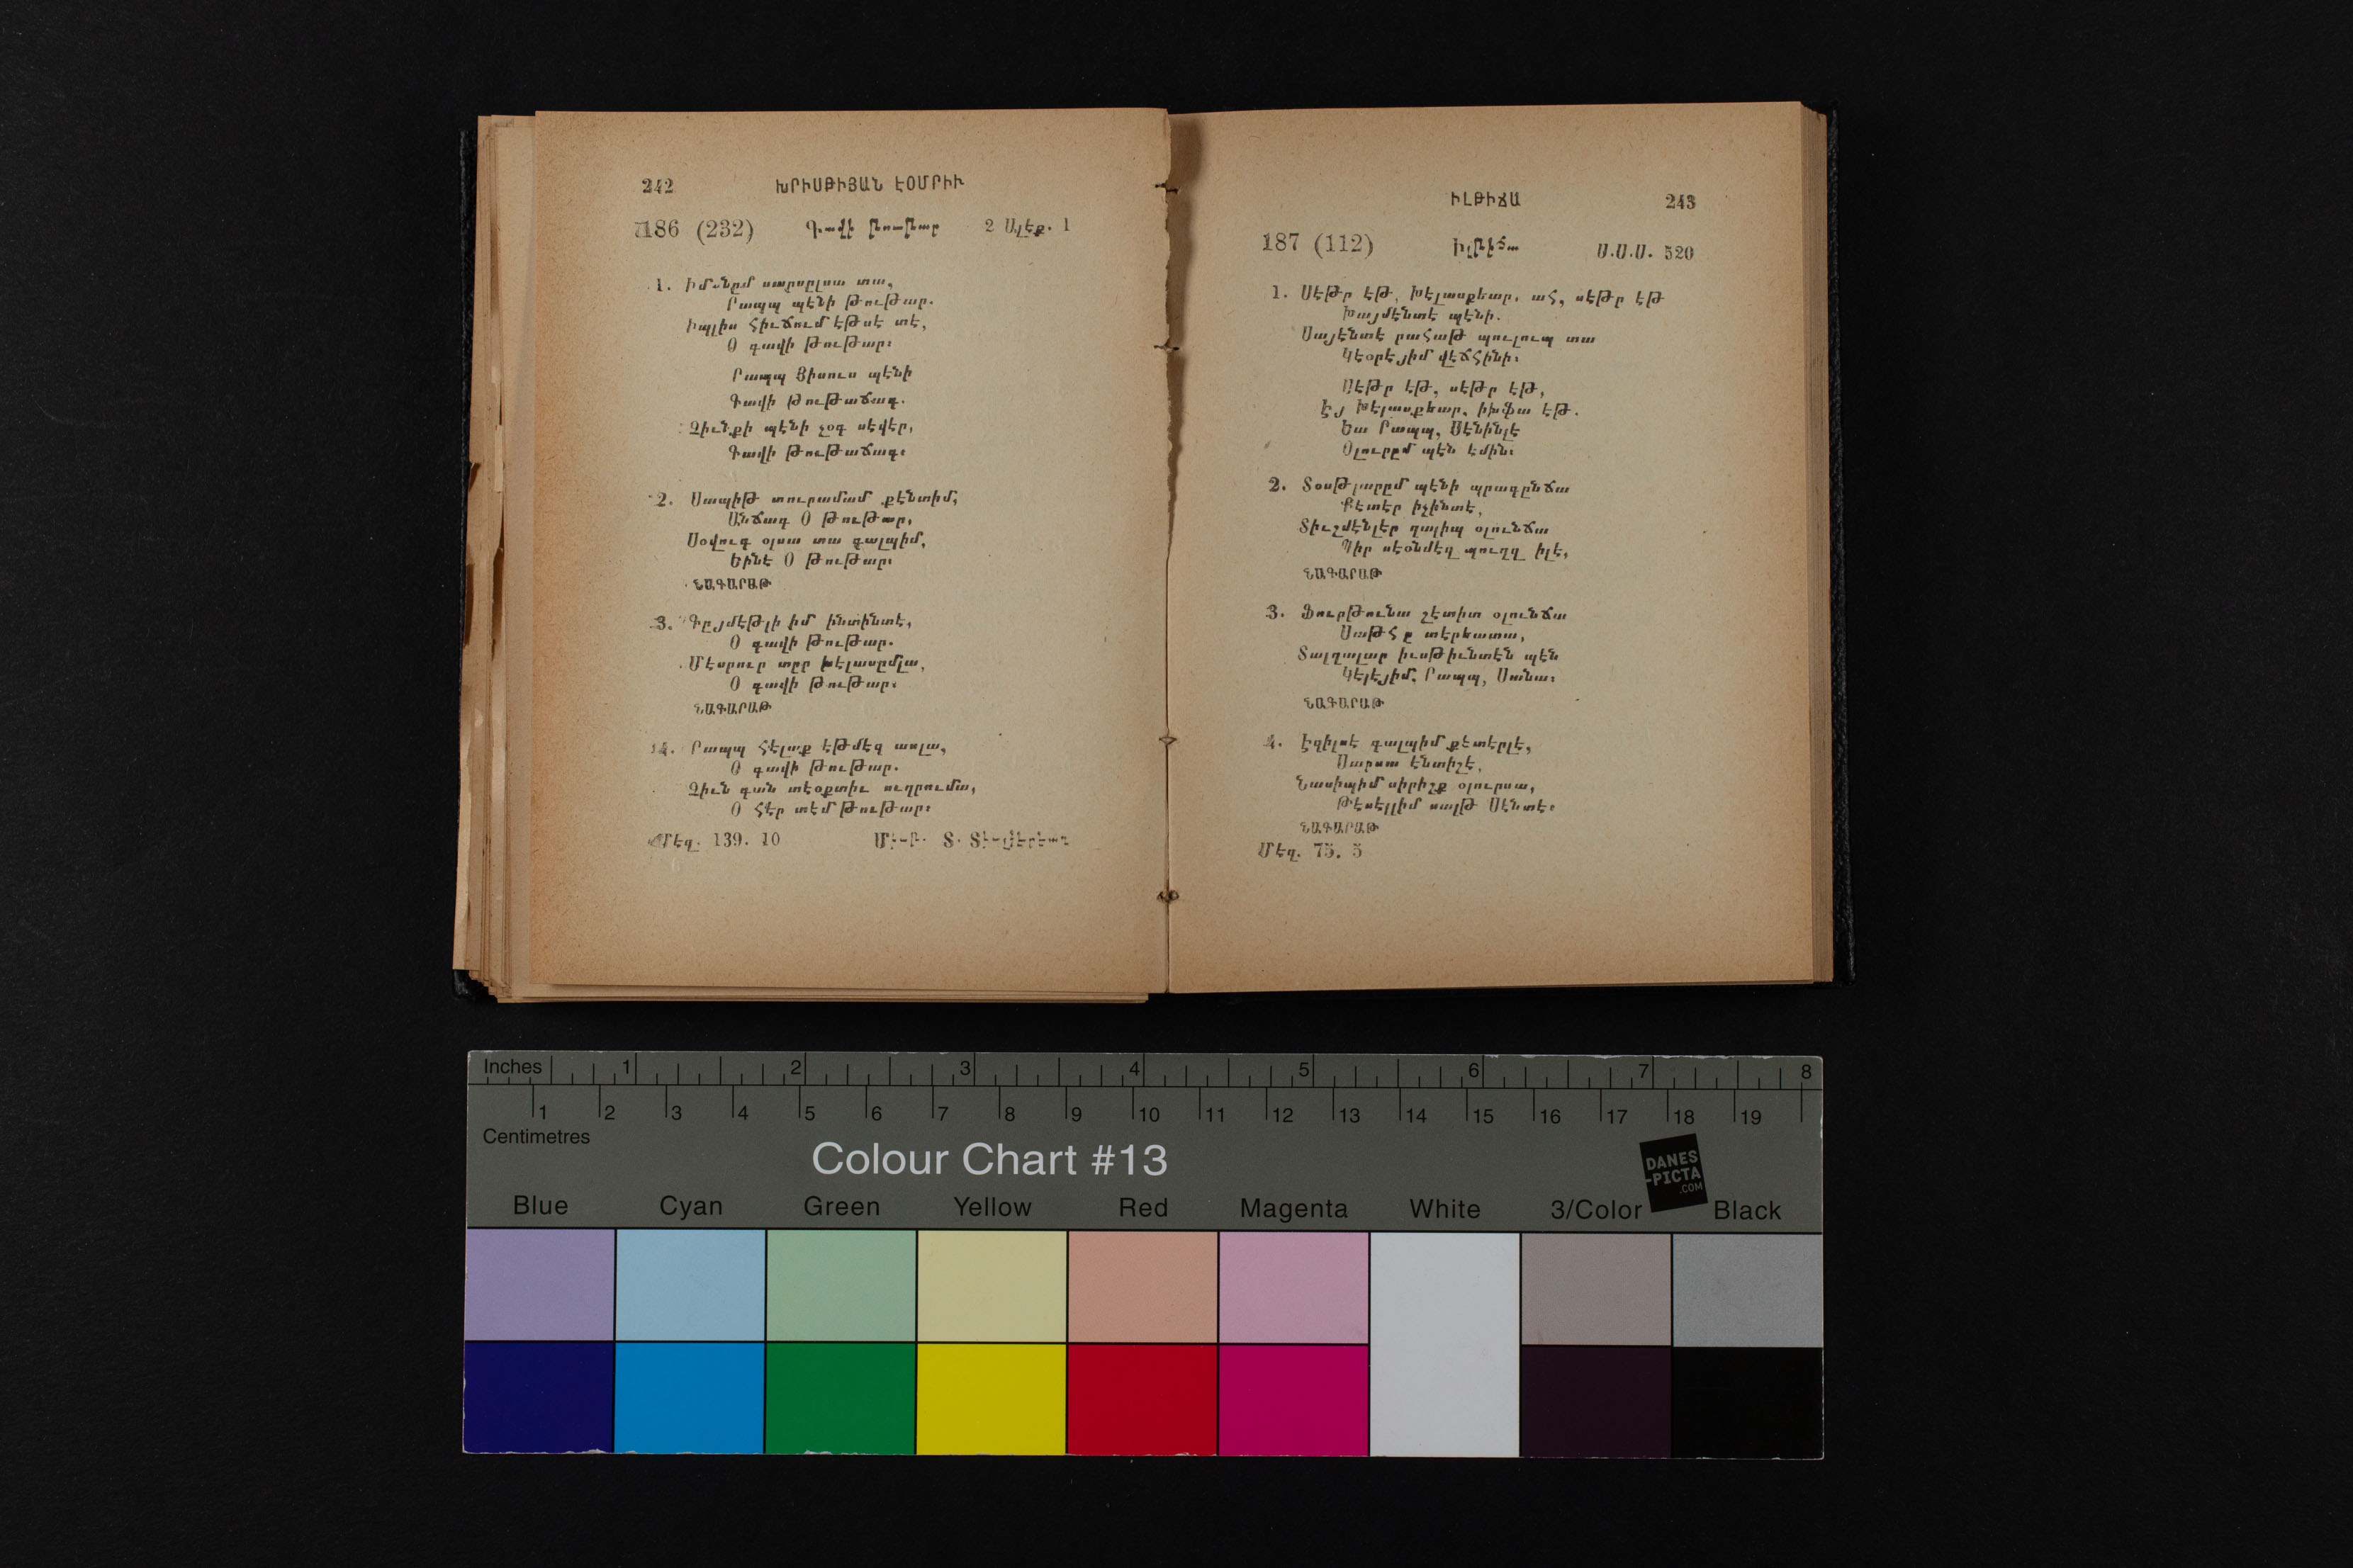 242 ԽՐԻՍԹԻՅԱՆ ԷՕՄՐԻՒ
186 (232) Գավի թութար 2 Սլէք. 1
1. Իմանըմ սարսըլսա տա,
Րապպ պէնի թութար.
Իպլիս հիւճում էթսէ տէ,
Օ գավի թութար։
Րապպ Յիսուս պէնի
Գավի թութաճագ.
Զիւնքի պէնի չօգ սէվէր,
Գավի թութաճագ։
2. Սապիթ տուրամամ քէնտիմ,
Անճագ Օ թութար,
Սօվուգ օլսա տա գալպիմ,
Եինէ Օ թութար։
ՆԱԳԱՐԱԹ
3. Գըյմէթլի իմ ինտինտէ,
Օ գավի թութար.
Մէսրուր տըր խէլասըմլա,
Օ գավի թութար։
ՆԱԳԱՐԱԹ
4. Րապպ հէլաք էթմէզ ասլա,
Օ գավի թութար.
Զիւն գան տէօքտիւ ուղրումա,
Օ հէր տէմ թութար։
Մէզ. 139. 10 Տ.
ԻԼԹԻՃԱ 243
187 (112) Իլթիճա Ս.Ս.Ս. 520
1. Սէթր էթ, խէլասքեար, ահ, սէթր էթ
Խայմէնտէ պէնի.
Սայէնտէ րահաթ պուլուպ տա
Կէօրէյիմ վէճհինի։
Սէթր էթ, սէթր էթ,
Էյ խէլասքեար, իխֆա էթ.
Եա Րապպ, Սէնինլէ
Օլուրըմ պէն էմին։
2. Տօսթլարըմ պէնի պրագընճա
Քէտէր իչինտէ,
Տիւշմէնլէր ղալիպ օլունճա
Պիր սէօնմէզ պուղզ իլէ,
ՆԱԳԱՐԱԹ
3. Ֆուրթունա շէտիտ օլունճա
Սաթհ ը տէրեատա,
Տալղալար իւսթիւնտէն պէն
Կէլէյիմ, Րապպ, Սանա։
ՆԱԳԱՐԱԹ
4. Էզիլսէ գալպիմ քէտէրլէ,
Սարսա էնտիշէ,
Նասիպիմ սիրիշք օլուրսա,
Թէսէլլիմ սալթ Սէնտէ։
ՆԱԳԱՐԱԹ
Մէզ. 75. 5
Inches 1 2 3 4 5 6 7 8
1 2 3 4 5 6 7 8 9 10 11 12 13 14 15 16 17 18 19
Centimetres
Colour Chart #13
DANES
-PICTA
.COM
Blue Cyan Green Yellow Red Magenta White 3/Color Black